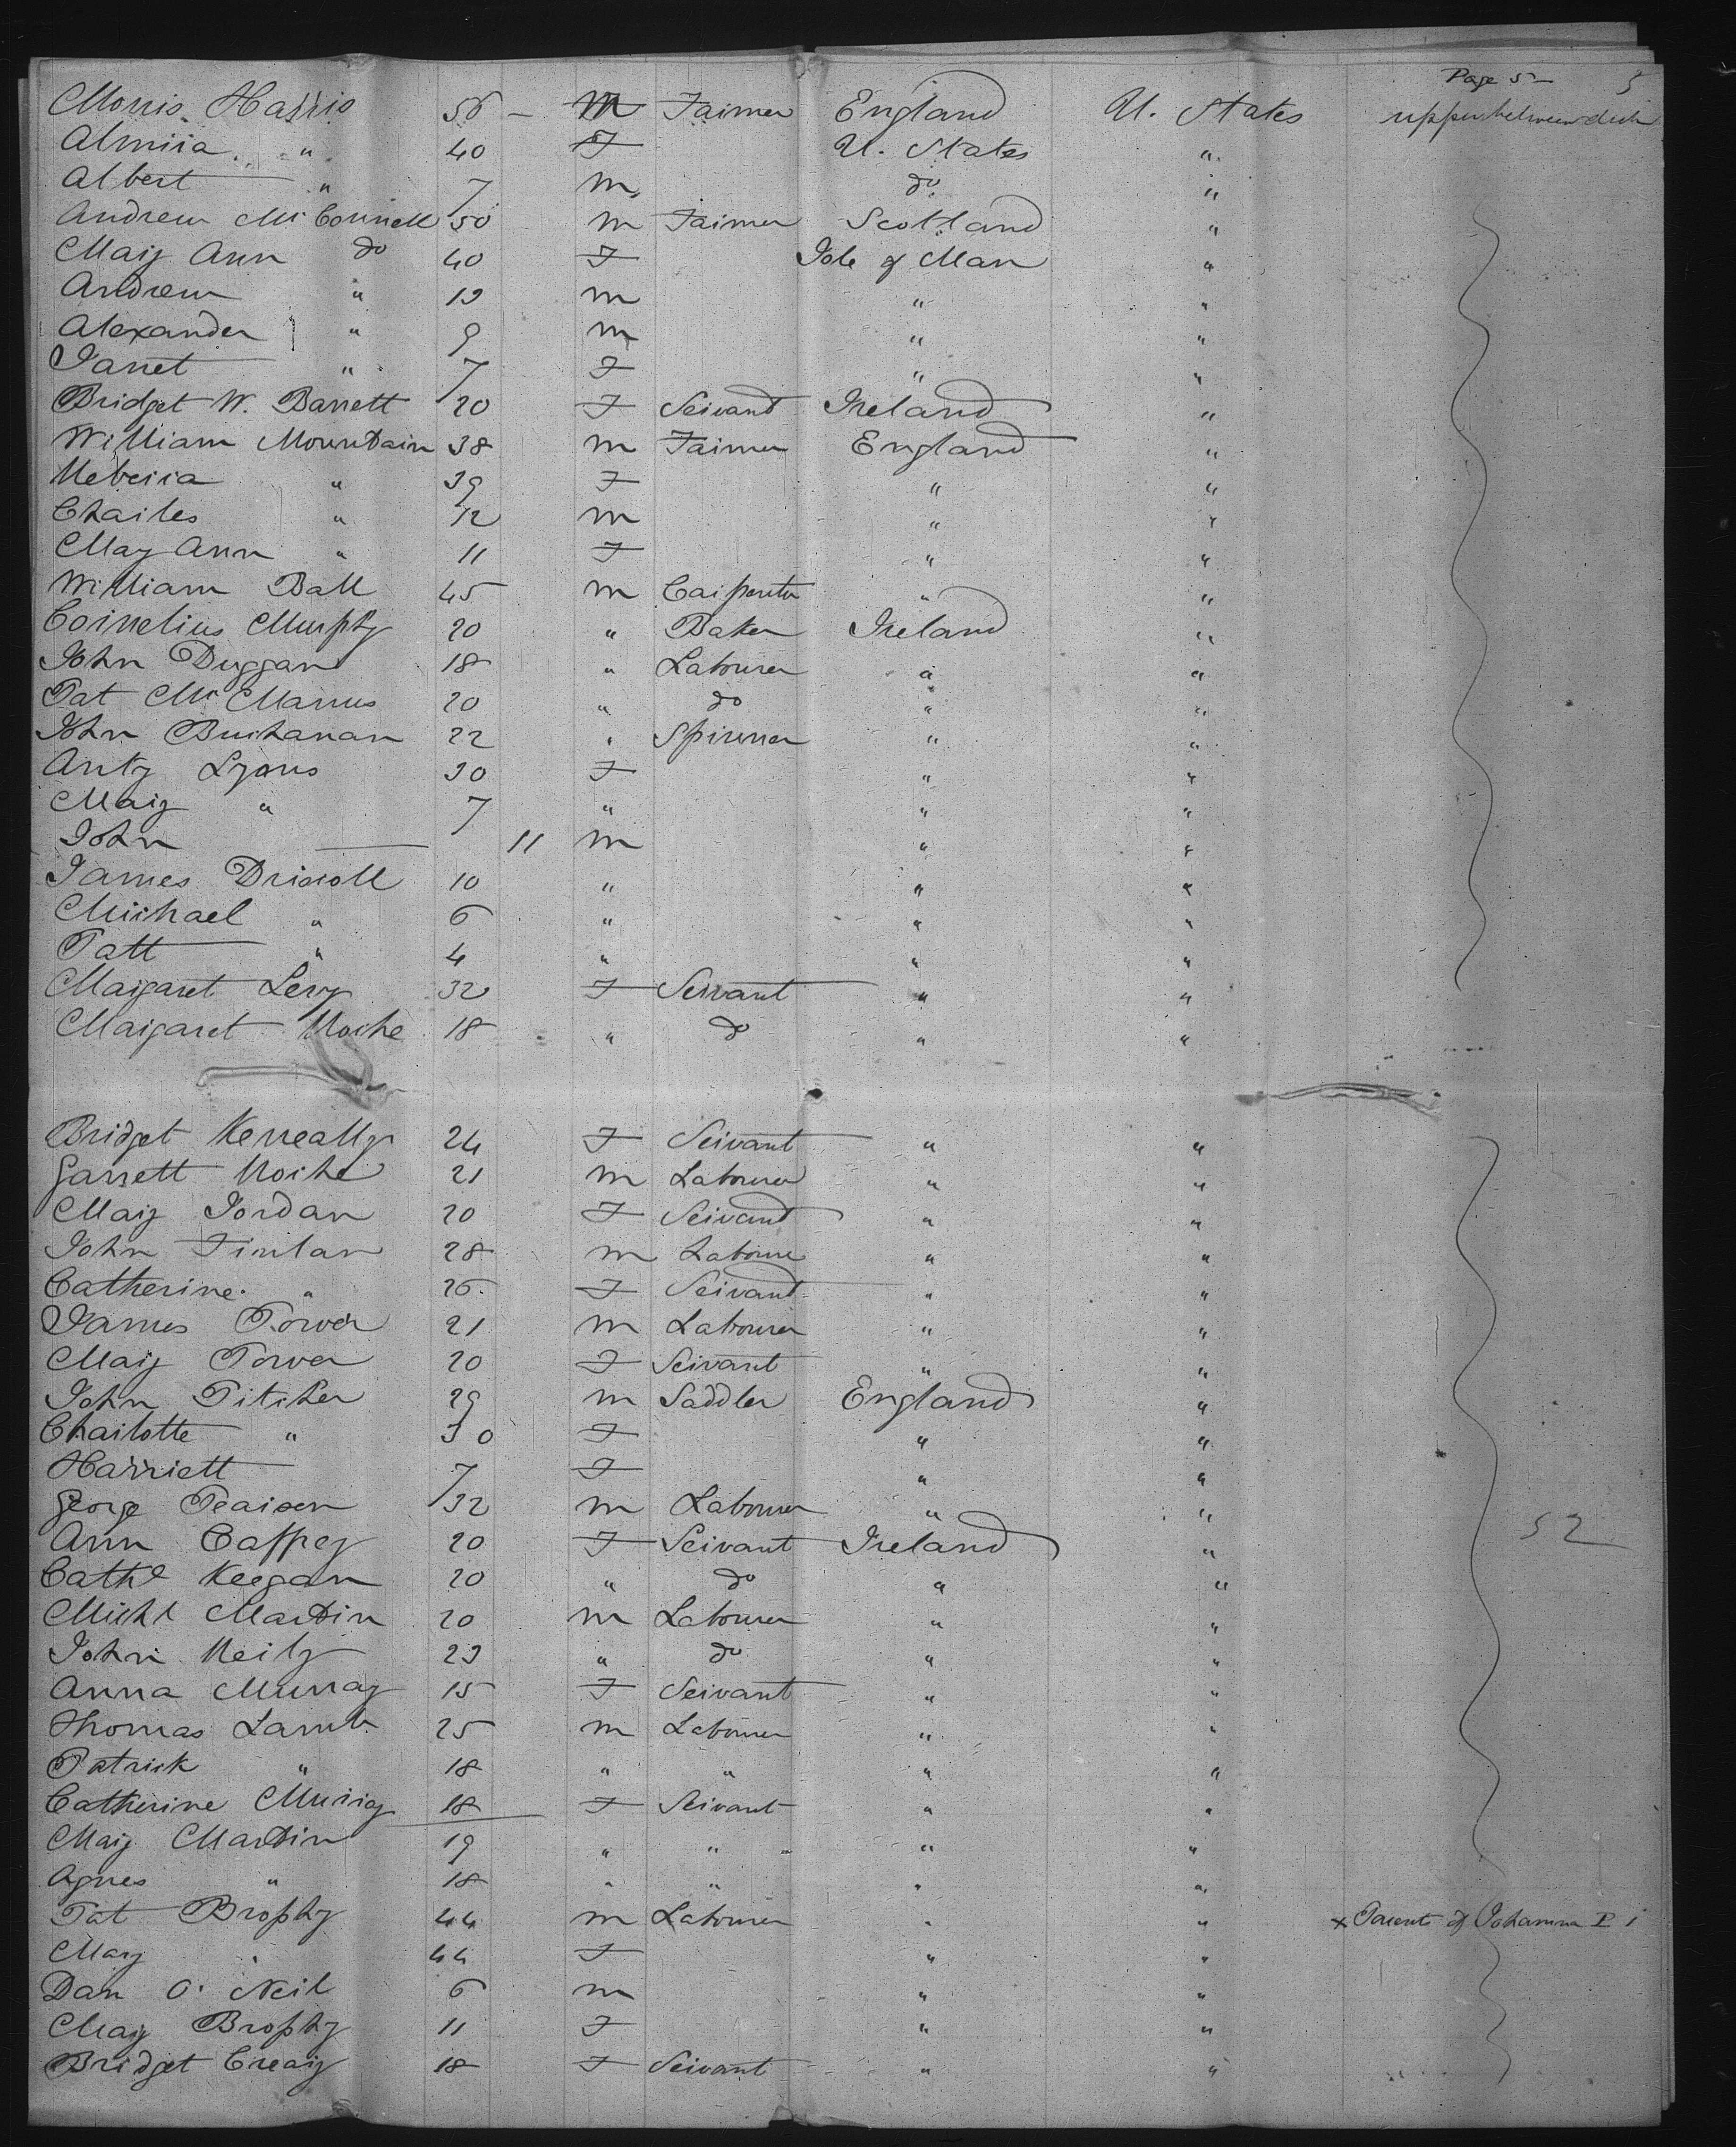 Page 5
Morris Harris 56 M Farmer England U. States upper between deck
Almira " 40 F U. States "
Albert " 7 m do "
Andrew McConnell 50 m Farmer Scotland "
Mary Ann do 40 F Isle of Man "
Andrew " 13 m " "
Alexander " 9 m " "
Janet " 7 F " "
Bridget W. Barrett 20 F Servant Ireland "
William Mountain 38 m Farmer England "
Rebecca " 39 F " "
Charles " 12 m " "
May Ann " 11 F " "
William Ball 45 m Carpenter " "
Cornelius Murphy 20 " Baker Ireland "
John Duggan 18 " Labourer " "
Pat McManus 20 " do " "
John Buchanan 22 " Spinner " "
Anty Lyons 30 F " "
Mary " 7 " " "
John 11 m " "
James Driscoll 10 " " "
Michael " 6 " " "
Patt " 4 " " "
Margaret Levy 32 F Servant " "
Margaret Roche 18 " do " "
Bridget Kerreally 24 F Servant " "
Garrett Roche 21 m Labourer " "
Mary Jordan 20 F Servant " "
John Finlan 28 m Laboure " "
Catherine " 26 F Servant " "
James Power 21 m Labourer " "
Mary Power 20 F Servant " "
John Pitcher 29 m Saddler England "
Charlotte " 30 F " "
Harriett 7 F " "
George Pearson 32 m Labourer " "
Ann Caffrey 20 F Servant Ireland " 52
Cathe Keegan 20 " do " "
Michl Martin 20 m Labourer " "
John Reily 23 " do " "
Anna Murray 15 F Servant " "
Thomas Lamb 25 m Labourer " "
Patrick " 18 " " " "
Catherine Murray 18 F Servant " "
Mary Martin 19 " " " "
Agnes " 18 " " " "
Pat Brophy 44 m Labourer " " x Parents of Johanna P 1
Mary " 44 F " "
Dan O. Neil 6 m " "
Mary Brophy 11 F " "
Bridget Creary 18 F Servant " "